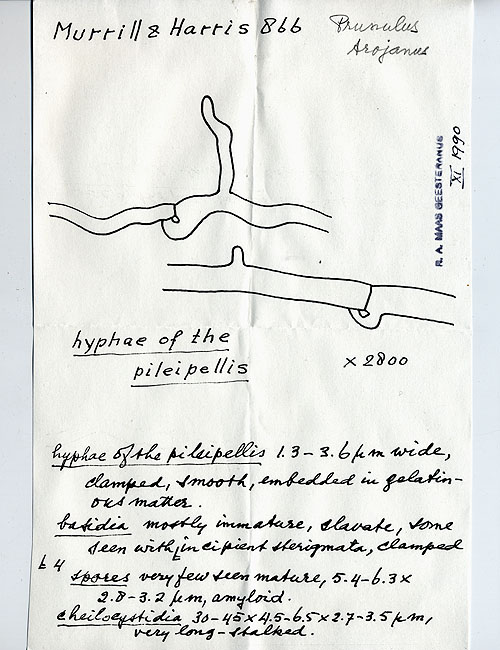 Murrill & Harris 866
Prunulus
Arojanus
R. A. MAAS GEESTERANUS
XI 1990
hyphae of the
pileipellis
x 2800
hyphae of the pileipellis 1.3 – 3.6 µm wide,
clamped, smooth, embedded in gelatin-
ous matter.
basidia mostly immature, clavate, some
seen with 4 incipient sterigmata, clamped
spores very few seen mature, 5.4 – 6.3 x
2.8 – 3.2 µm, amyloid.
cheilocystidia 30 – 45 x 4.5 – 6.5 x 2.7 – 3.5 µm,
very long-stalked.